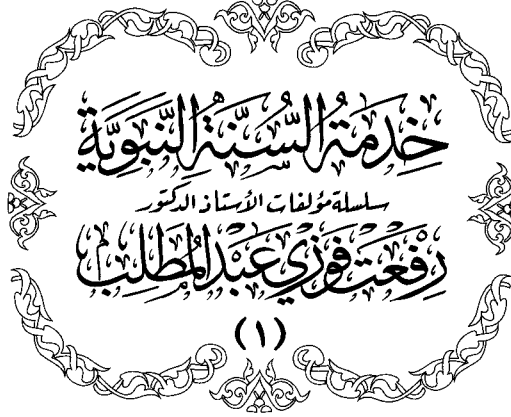 خِدْمَةُ السُّنَّةِ النَّبَوِيَّةِ
سلسلة مؤلفات الأستاذ الدكتور
رِفْعَت فَوْزِي عَبْدُ المُطَّلِبْ
(١)